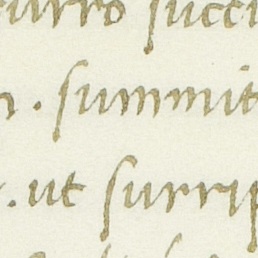 urro succi
. summit
. ut surrip